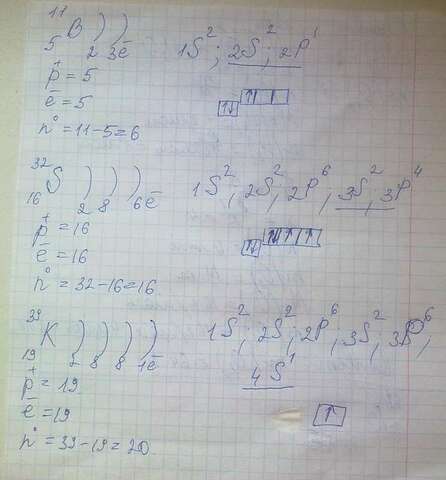 ¹¹₅B ) ) 2 3ē 1S²; 2S²; 2P¹
p⁺ = 5
ē = 5 ↑↓ ↑
n° = 11-5=6
³²₁₆S ) ) ) 2 8 6ē 1S²; 2S²; 2P⁶; 3S²; 3P⁴
p⁺ = 16
ē = 16 ↑↓ ↑↓ ↑ ↑
n° = 32-16=16
³⁹₁₉K ) ) ) ) 2 8 8 1ē 1S²; 2S²; 2P⁶; 3S²; 3P⁶;
4S¹
p⁺ = 19
ē = 19 ↑
n° = 39-19=20